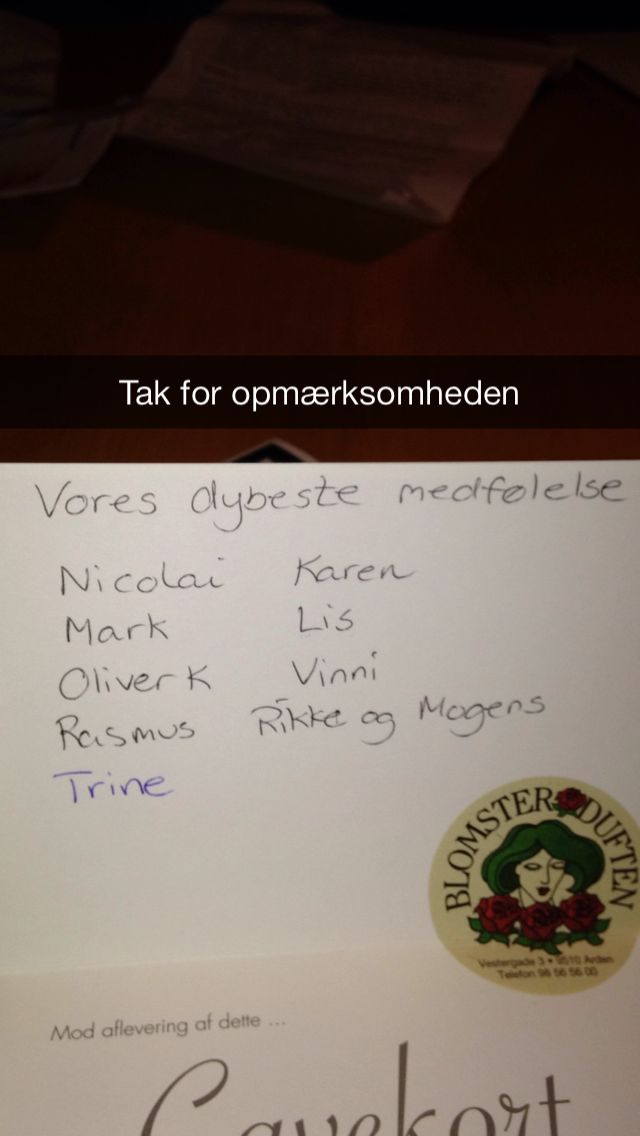 Tak for opmærksomheden
Vores dybeste medfølelse
Nicolai Karen
Mark Lis
Oliver K Vinni
Rasmus Rikke og Mogens
Trine
BLOMSTER DUFTEN
Vestergade 3 • 9510 Arden
Telefon 98 56 56 00
Mod aflevering af dette ...
Gavekort